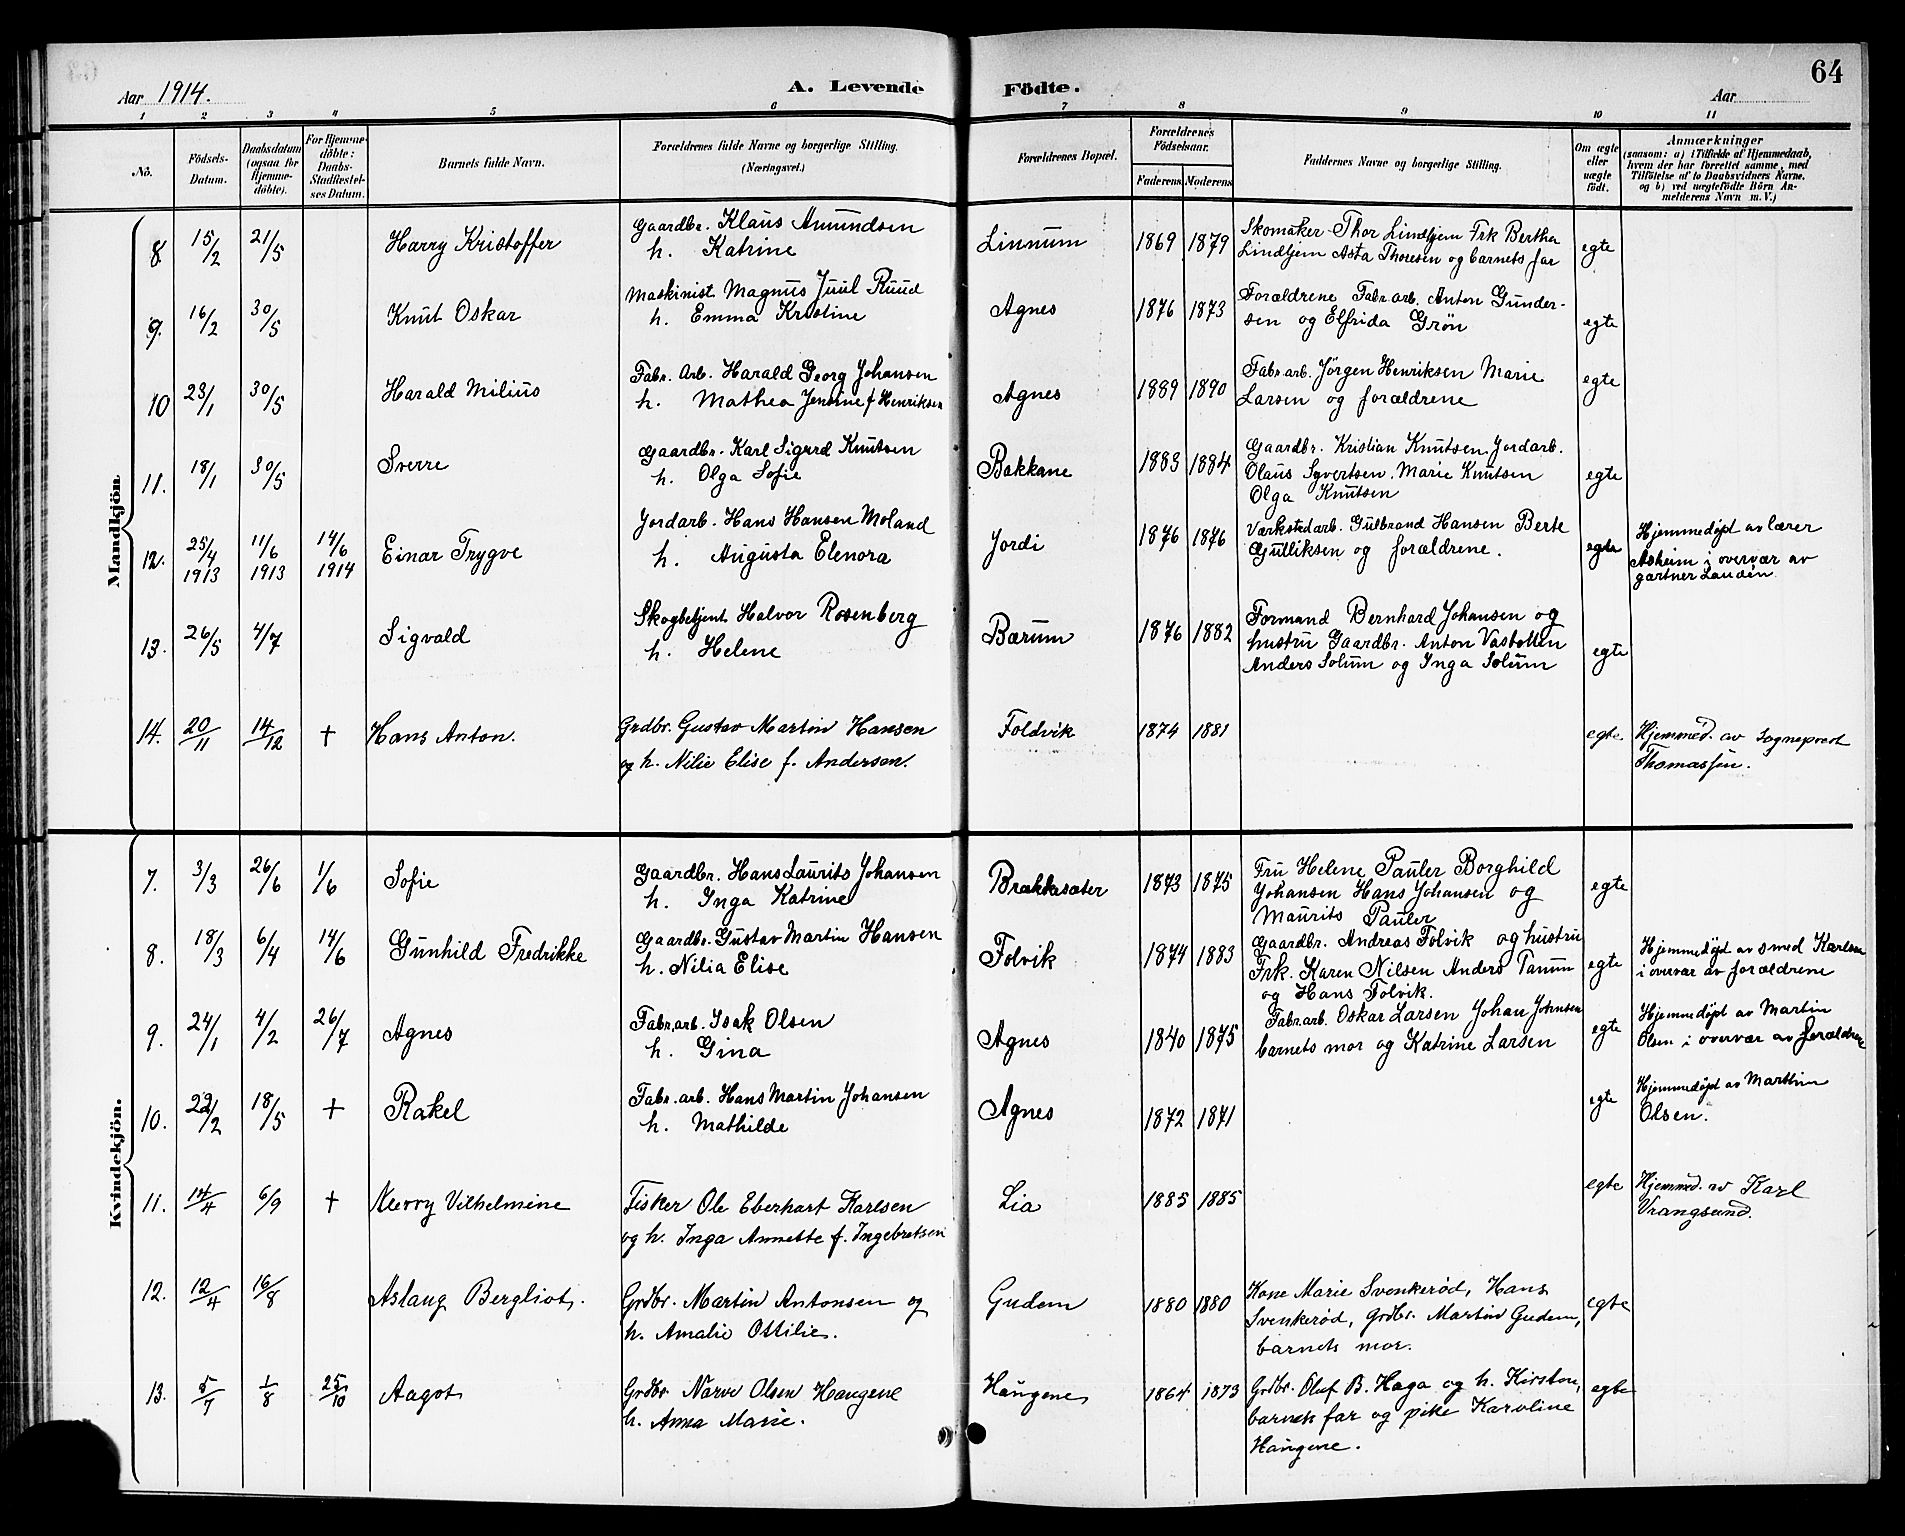 64
Aar 1914. A. Levende Födte. Aar
1 2 3 4 5 6 7 8 9 10 11
No. Födsels-Datum. Daabsdatum (ogsaa for Hjemmedöbte). For Hjemmedöbte: Daabs-Stadfæstelses Datum. Barnets fulde Navn. Forældrenes fulde Navne og borgerlige Stilling. (Næringsvei.) Forældrenes Bopæl. Forældrenes Födselsaar. Faderens Moderens Faddernes Navne og borgerlige Stilling. Om ægte eller uægte födt. Anmærkninger (saasom: a) i Tilfælde af Hjemmedaab, hvem der har forrettet samme, med Tilföielse af to Daabsvidners Navne, og b) ved uægtefödte Börn Anmelderens Navn m. V.)
Mandkjön.
8. 15/2 21/5 Harry Kristoffer Gaardbr. Klaus Amundsen Linnum 1869 1879 Skomaker Thor Lindhjem Frk Bertha egte
h. Katrine Lindhjem Asta Thoresen og barnets far
9. 16/2 30/5 Knut Oskar Maskinist Magnus Juul Ruud Agnes 1876 1873 Forældrene Fabr. arb. Anton Gunder- egte
h. Emma Kristine sen og Elfrida Grön
10 23/1 30/5 Harald Milius Fabr. Arb. Harald Georg Johansen Agnes 1889 1890 Fabr. arb. Jörgen Henriksen Marie egte
h. Mathea Jensine f Henriksen Larsen og forældrene
11. 18/1 30/5 Sverre Gaardbr. Karl Sigurd Knutsen Bakkane 1883 1884 Gaardbr. Kristian Knutsen Jordarb. egte
h. Olga Sofie Olaus Syvertsen. Marie Knutsen
Olga Knutsen
12. 25/4 1913 11/6 1913 14/6 1914 Einar Trygve Jordarb. Hans Hansen Moland Jordi 1876 1876 Værkstedarb. Gulbrand Hansen Berte egte Hjemmedöpt av lærer
h. Augusta Elenora Gulliksen og forældrene. Asheim i overvær av
gartner Laudén
13. 26/5 4/7 Sigvald Skogbetjent Halvor Rosenberg Bærum 1876 1882 Formand Bernhard Johansen og egte
h. Helene hustru Gaardbr. Anton Vasbotten
Anders Solum og Inga Solum
14. 20/11 14/12 + Hans Anton. Grdbr. Gustav Martin Hansen Foldvik 1874 1881 egte Hjemmed. av Sogneprest
og h. Nilie Elise f. Andersen. Thomassen.
Kvindekjön.
7. 3/3 26/6 1/6 Sofie Gaardbr. Hans Laurits Johansen Brækkesæter 1873 1875 Fru Helene Pauler Borghild egte
h. Inga Katrine Johansen Hans Johansen og
Maurits Pauler
8. 18/3 6/4 14/6 Gunhild Fredrikke Gaardbr. Gustav Martin Hansen Folvik 1874 1883 Gaardbr. Andreas Folvik og hustru egte Hjemmedöpt av smed Karlsen
h. Nilia Elise Frk. Karen Nilsen Anders Tanum i overvær av forældrene
og Hans Folvik.
9. 24/1 4/2 26/7 Agnes Fabr. arb. Isak Olsen Agnes 1840 1875 Fabr. arb. Oskar Larsen Johan Johnsen egte Hjemmedöpt av Martin
h. Gina barnets mor og Katrine Larsen Olsen i overvær av forældrene
10. 22/2 18/5 + Rakel Fabr. arb. Hans Martin Johansen Agnes 1872 1871 egte Hjemmedöpt av Marthin
h. Mathilde Olsen.
11. 14/4 6/9 + Merry Vilhelmine Fisker Ole Eberhart Karlsen Lia 1885 1885 egte Hjemmed. av Karl
og h. Inga Annette f. Ingebretsen Vrangsund.
12. 12/4 16/8 Aslaug Bergliot. Grdbr. Martin Antonsen og Gudem 1880 1880 Kone Marie Svenkeröd, Hans egte
h. Amalie Ottilie. Svenkeröd, Grdbr. Martin Gudem,
barnets mor.
13. 5/7 1/8 25/10 Aagot Grdbr Narve Olsen Haugene Haugene 1864 1873 Grdbr. Oluf B. Haga og h. Kirsten, egte
h. Anna Marie. barnets far og pike Karoline
Haugene.